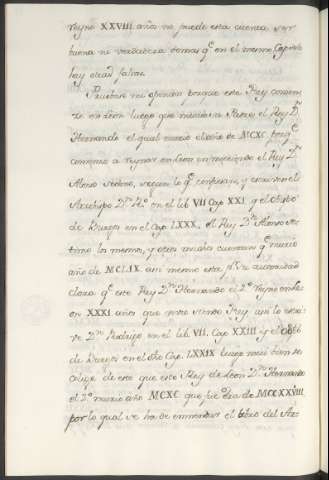 reyno XXVIII años no puede esta cuenta ser
buena ni verdadera demas q.e en el mismo Capitulo
hay otras faltas.
Pruebase mi opinion porque este Rey comen
zò
en Leon luego que murio su Padre el Rey D.n
Hernando el qual murio el año de MCXC porq.e
comenzo a reynar en Leon en muriendo el Rey D.n
Alonso Septimo, segun lo q.e confiesan, y escriven el
Arzobispo D.n R.o en el lib VII Cap XXI y el Obispo
de Burgos en el Cap. LXXX, el Rey D.n Alonso sep
timo los mismos, y otros muchos cuentan q.e murio
año de MCLIX. ansi mesmo esta autoridad
clara q.e este Rey D.n Hernando el 2.o reyno en Leon
XXXI años que murio siendo Rey, asi lo escri
ve D.n Rodrigo en el lib. VII. Cap XXIII y el obpo
de Burgos en el dho Cap. LXXIX luego mui bien se
colige de esto que este Rey de Leon D.n Hernando
el 2.o murio año MCXC que fue Era de MCCXXVIII,
por lo qual se ha de enmendar el libro del Arz